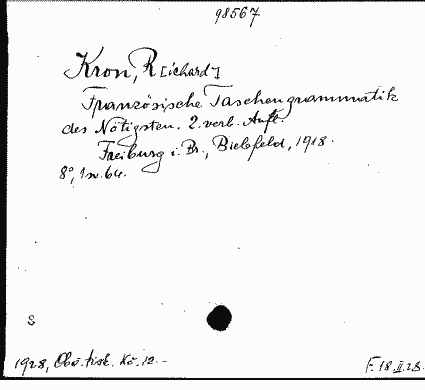 98567
Kron, R[ichard]
Französische Taschengrammatik
des Nötigsten. 2. verb. Aufl.
Freiburg i. Br., Bielefeld, 1918.
8°, 1 w. 64.
S
1928, Kč. 12.-
F. 18. II. 28.